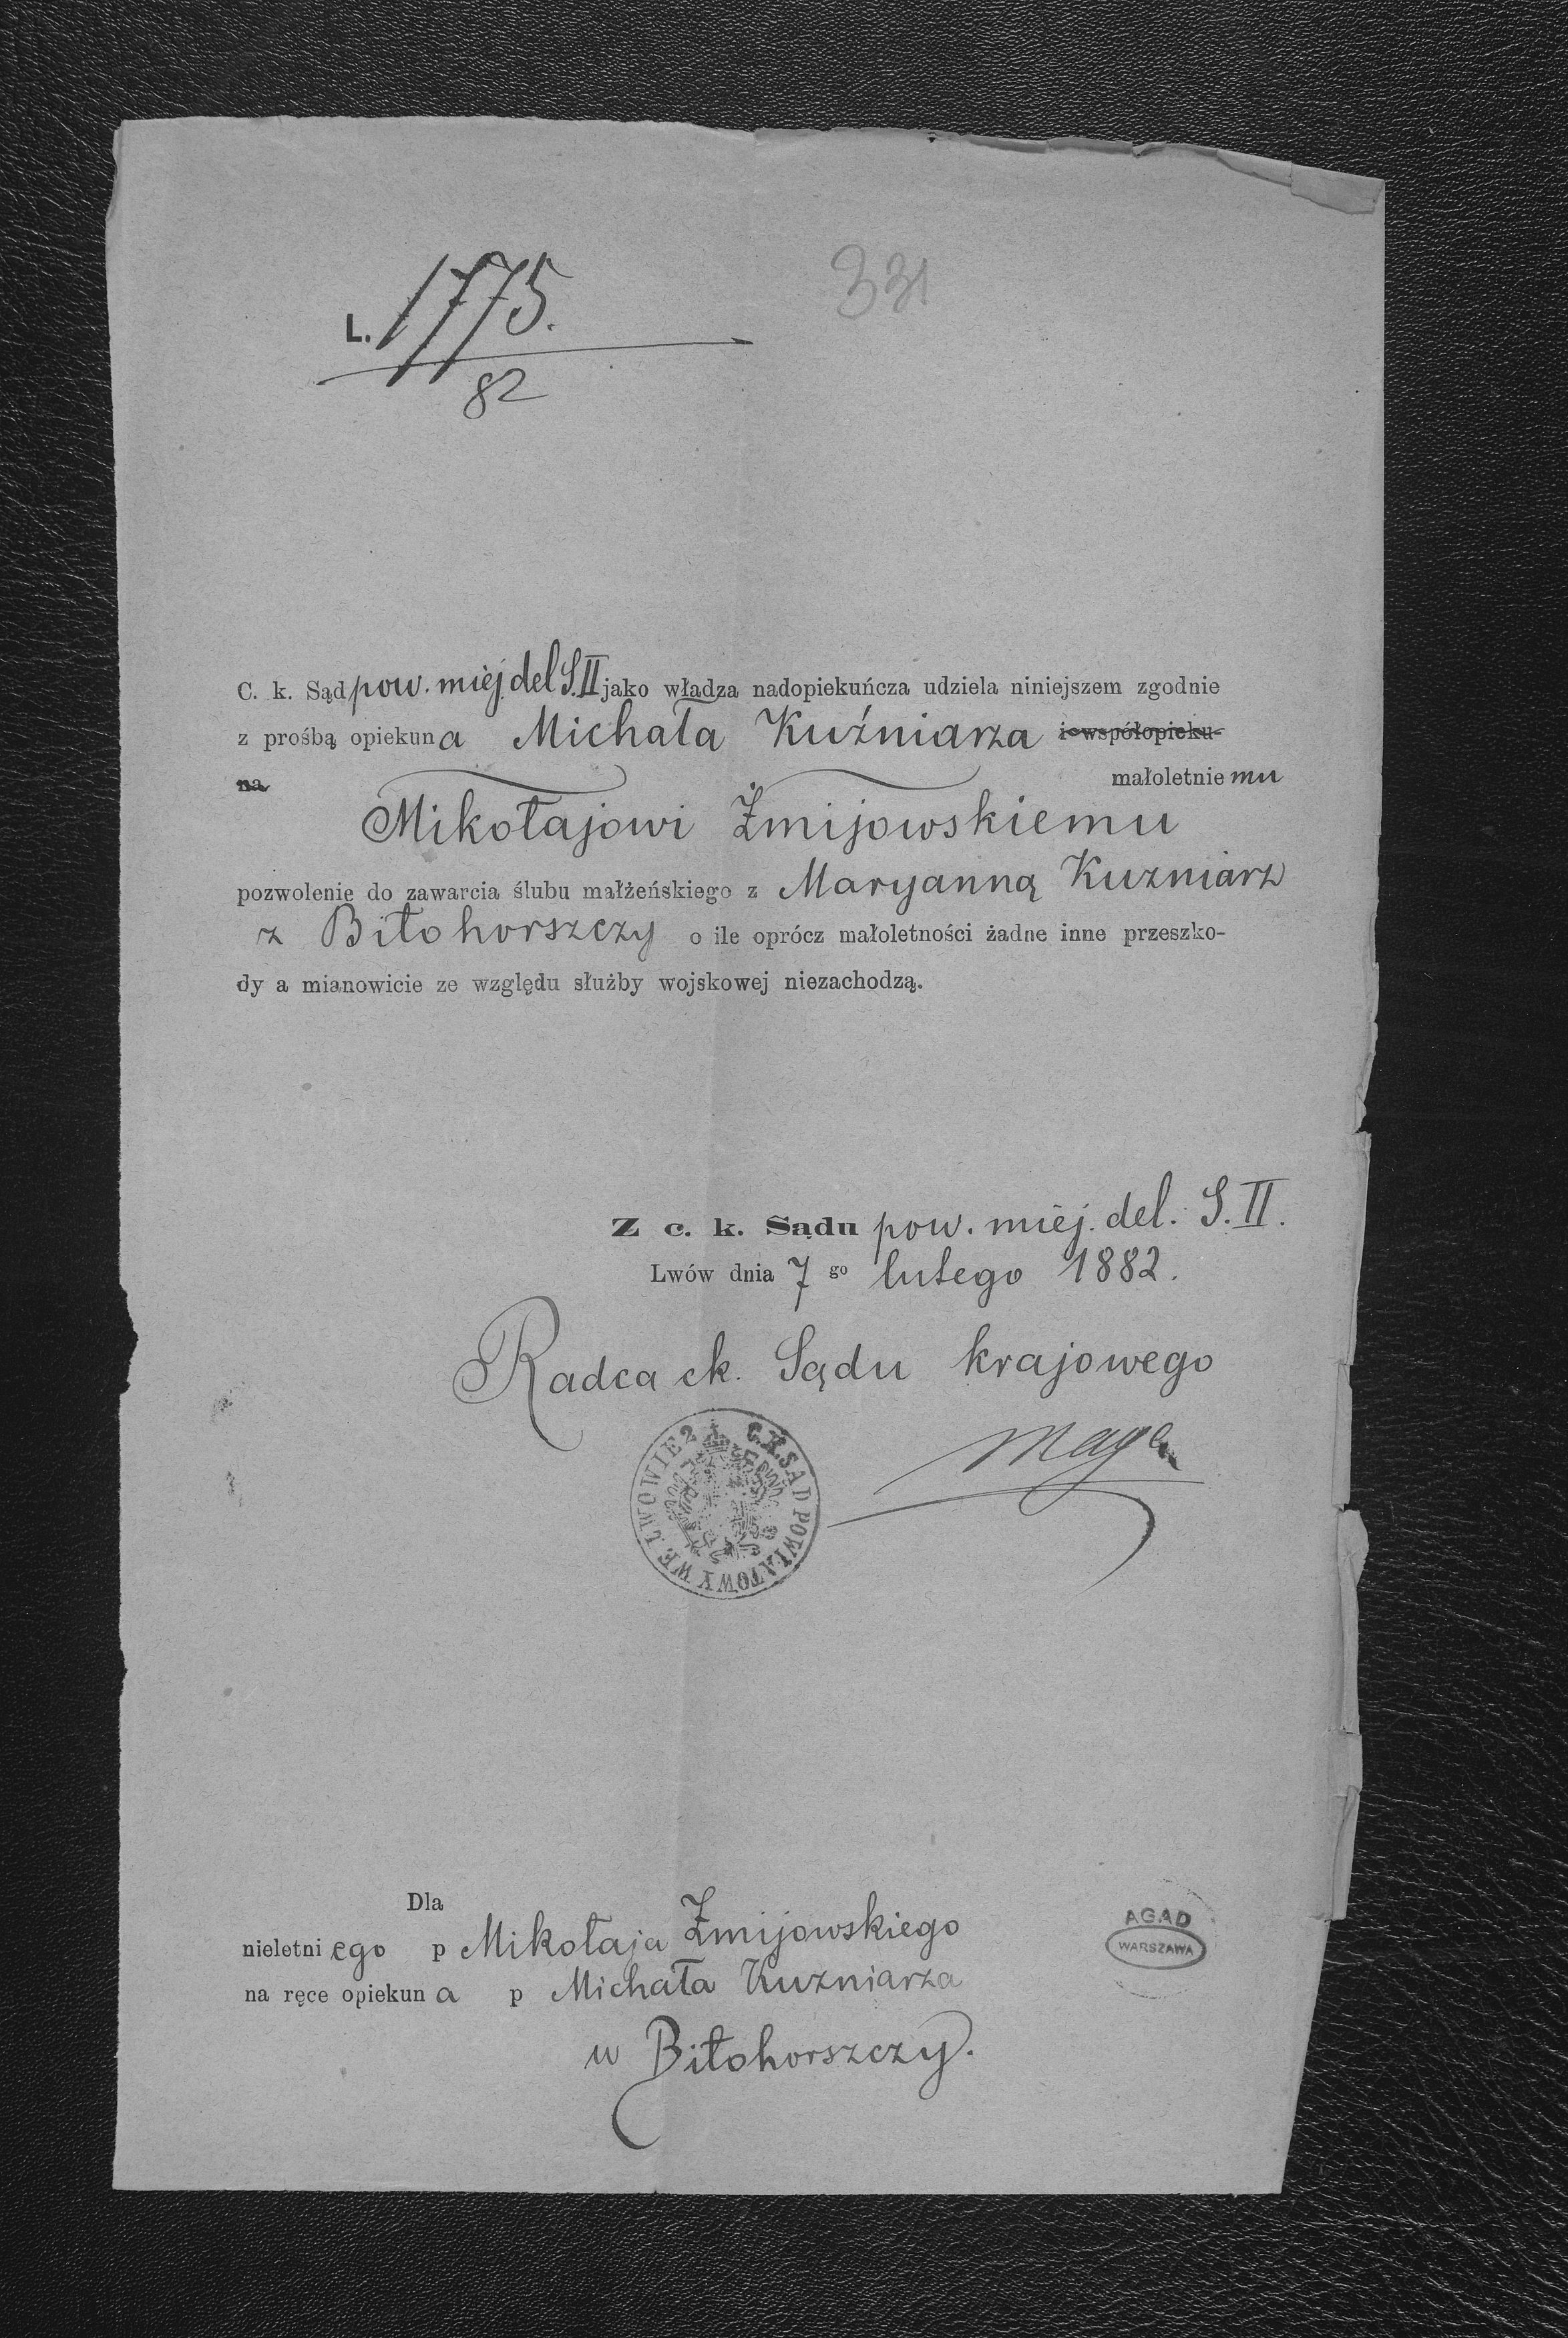 331
L. 1775.
82
C. k. Sąd pow. miej. del S. II jako władza nadopiekuńcza udziela niniejszem zgodnie
z prośbą opiekuna Michała Kuźniarza i współopieku-
na małoletniemu
Mikołajowi Żmijowskiemu
pozwolenie do zawarcia ślubu małżeńskiego z Maryanną Kuzniarz
z Biłohorszczy o ile oprócz małoletności żadne inne przeszko-
dy a mianowicie ze względu służby wojskowej niezachodzą.
Z c. k. Sądu pow. miej. del. S. II.
Lwów dnia 7 go lutego 1882.
Radca ck. Sądu krajowego
C.K. SĄD POWIATOWY WE LWOWIE 2
Dla
nieletniego p Mikołaja Żmijowskiego
na ręce opiekuna p Michała Kuzniarza
w Biłohorszczy.
AGAD
WARSZAWA